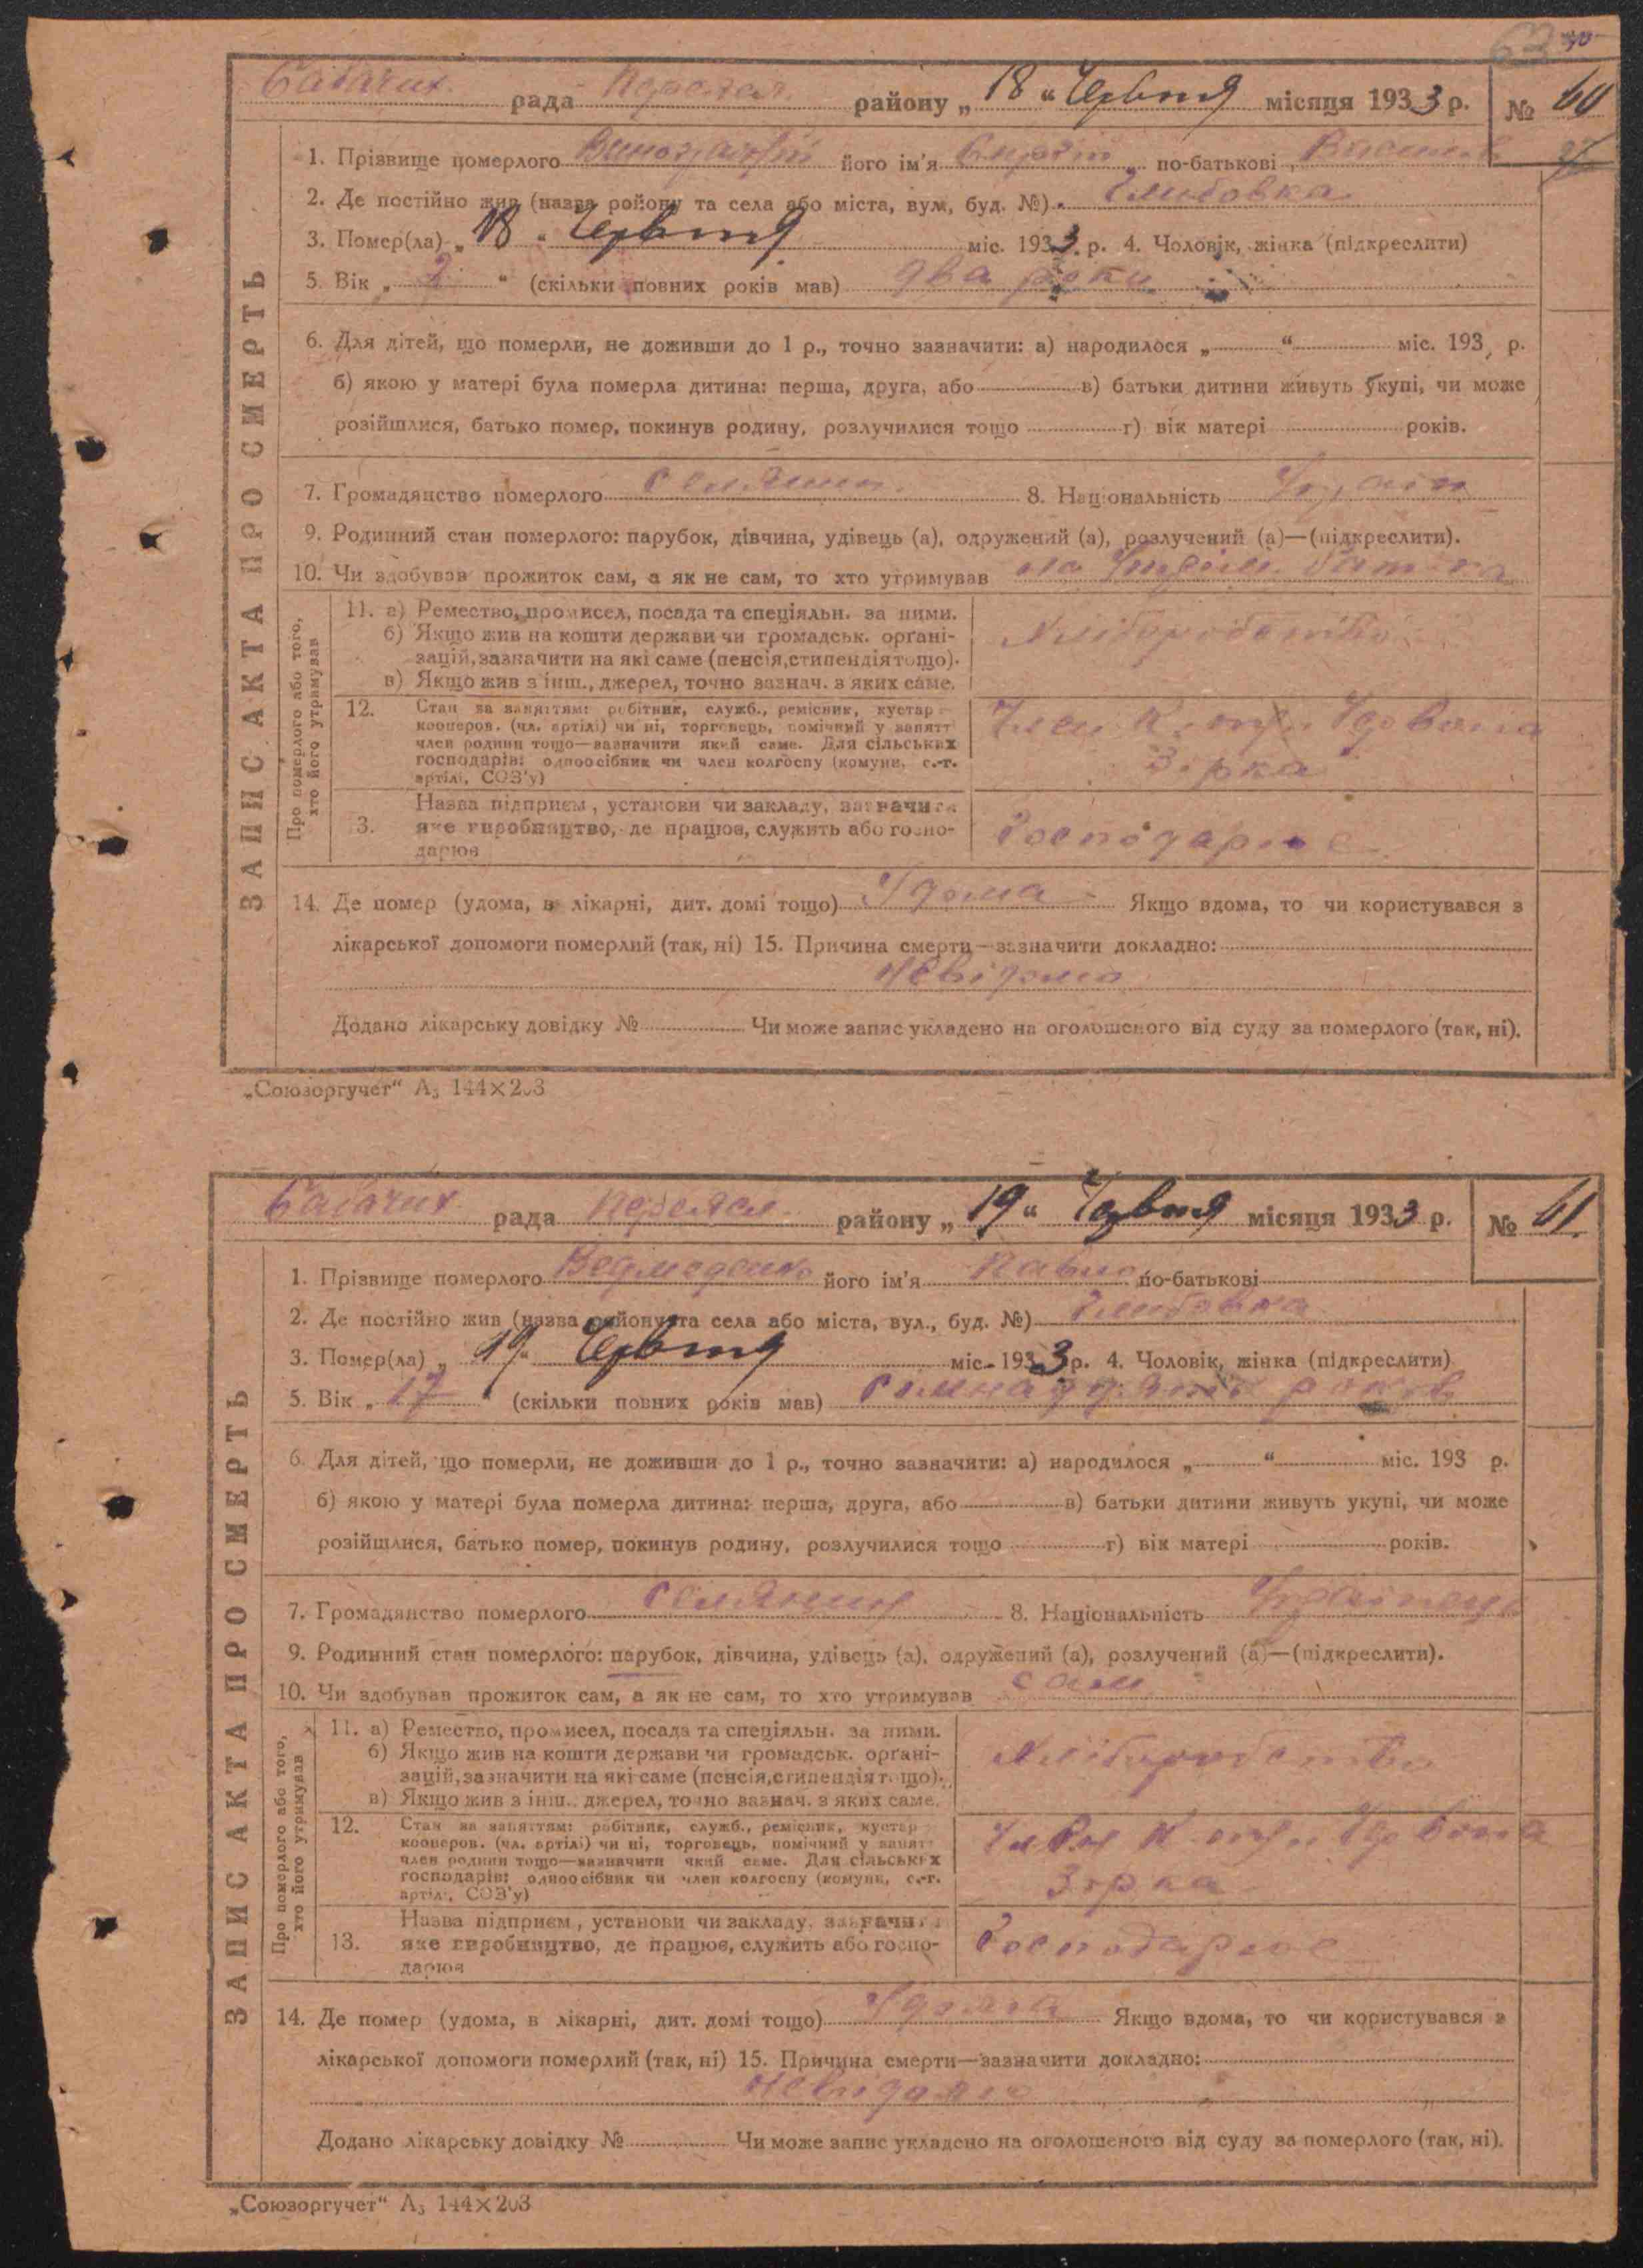 63
Бабачих. рада Переясл. району „18" Червня місяця 1933 р. № 60
1. Прізвище померлого його ім'я по-батькові
2. Де постійно жив (назва району та села або міста, вул, буд. №) Глибовка
3. Помер(ла) „18" Червня міс. 1933 р. 4. Чоловік, жінка (підкреслити)
5. Вік „2" (скільки повних років мав) два роки
6. Для дітей, що померли, не доживши до 1 р., точно зазначити: а) народилося „ " міс. 193 р.
б) якою у матері була померла дитина: перша, друга, або в) батьки дитини живуть укупі, чи може
розійшлися, батько помер, покинув родину, розлучилися тощо г) вік матері років.
7. Громадянство померлого селянин 8. Національність Україн
9. Родинний стан померлого: парубок, дівчина, удівець (а), одружений (а), розлучений (а)—(підкреслити).
10. Чи здобував прожиток сам, а як не сам, то хто утримував на батька
ЗАПИС АКТА ПРО СМЕРТЬ
Про померлого або того, хто його утримував
11. а) Ремество, промисел, посада та спеціяльн. за ними.
б) Якщо жив на кошти держави чи громадськ. органі-
зацій, зазначити на які саме (пенсія, стипендія тощо).
в) Якщо жив з інш., джерел, точно зазнач. з яких саме.
Хліборобство
12. Стан за заняттям: робітник, служб., ремісник, кустар
кооперов. (чл. артілі) чи ні, торговець, помічний у занятт
член родини тощо—зазначити який саме. Для сільських
господарів: одноосібник чи член колгоспу (комуни, с.-г.
артілі, СОЗ'у)
Член К. Червона
Зірка
13. Назва підприєм, установи чи закладу, зазначити
яке виробництво, де працює, служить або госпо-
дарює
Господарює
14. Де помер (удома, в лікарні, дит. домі тощо) Удома Якщо вдома, то чи користувався з
лікарської допомоги померлий (так, ні) 15. Причина смерти—зазначити докладно:
Невідомо
Додано лікарську довідку № Чи може запис укладено на оголошеного від суду за померлого (так, ні).
„Союзоргучет" А5 144×203
Бабачих рада Переясл. району „19" Червня місяця 1933 р. № 61.
1. Прізвище померлого Ведмеденко його ім'я Павло по-батькові
2. Де постійно жив (назва району та села або міста, вул., буд. №) Глибовка
3. Помер(ла) „19" Червня міс. 1933 р. 4. Чоловік, жінка (підкреслити)
5. Вік „17" (скільки повних років мав) років
6. Для дітей, що померли, не доживши до 1 р., точно зазначити: а) народилося „ " міс. 193 р.
б) якою у матері була померла дитина: перша, друга, або в) батьки дитини живуть укупі, чи може
розійшлися, батько помер, покинув родину, розлучилися тощо г) вік матері років.
7. Громадянство померлого селянин 8. Національність Українець
9. Родинний стан померлого: парубок, дівчина, удівець (а), одружений (а), розлучений (а)—(підкреслити).
10. Чи здобував прожиток сам, а як не сам, то хто утримував сам
ЗАПИС АКТА ПРО СМЕРТЬ
Про померлого або того, хто його утримував
11. а) Ремество, промисел, посада та спеціяльн. за ними.
б) Якщо жив на кошти держави чи громадськ. органі-
зацій, зазначити на які саме (пенсія, стипендія тощо).
в) Якщо жив з інш., джерел, точно зазнач. з яких саме.
Хліборобство
12. Стан за заняттям: робітник, служб., ремісник, кустар
кооперов. (чл. артілі) чи ні, торговець, помічний у занятт
член родини тощо—зазначити який саме. Для сільських
господарів: одноосібник чи член колгоспу (комуни, с.-г.
артілі, СОЗ'у)
Член К. Червона
Зірка
13. Назва підприєм, установи чи закладу, зазначити
яке виробництво, де працює, служить або госпо-
дарює
Господарює
14. Де помер (удома, в лікарні, дит. домі тощо) Удома Якщо вдома, то чи користувався з
лікарської допомоги померлий (так, ні) 15. Причина смерти—зазначити докладно:
Невідомо
Додано лікарську довідку № Чи може запис укладено на оголошеного від суду за померлого (так, ні).
„Союзоргучет" А5 144×203